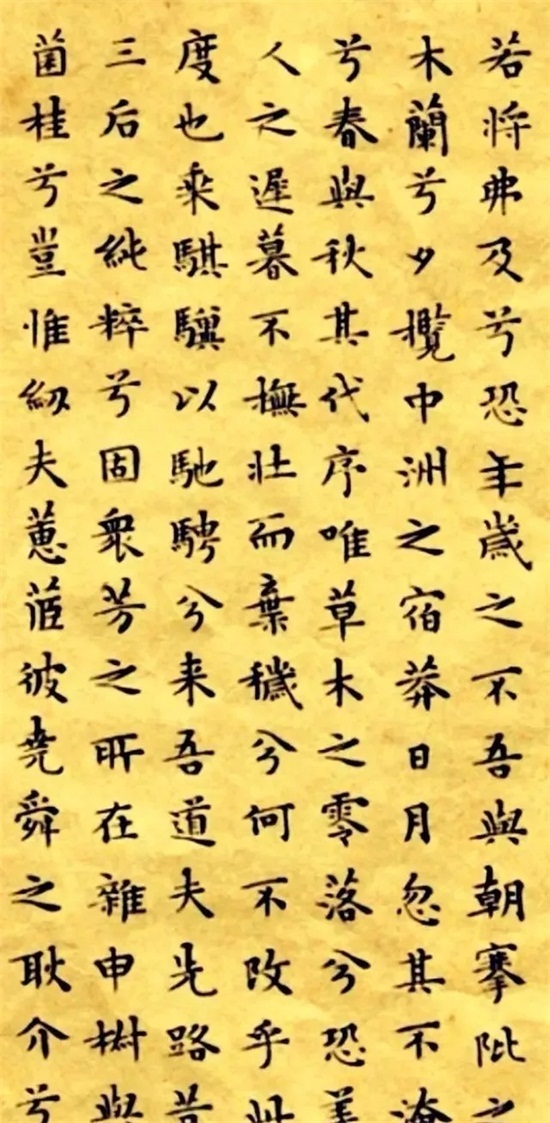 若将弗及兮恐年歲之不吾與朝搴阰之
木蘭兮夕攬中洲之宿莽日月忽其不淹
兮春與秋其代序唯草木之零落兮恐美
人之遲暮不撫壯而棄穢兮何不改乎此
度也乘騏驥以馳騁兮来吾道夫先路昔
三后之純粹兮固衆芳之所在雜申椒與
菌桂兮豈惟紉夫蕙茝彼堯舜之耿介兮